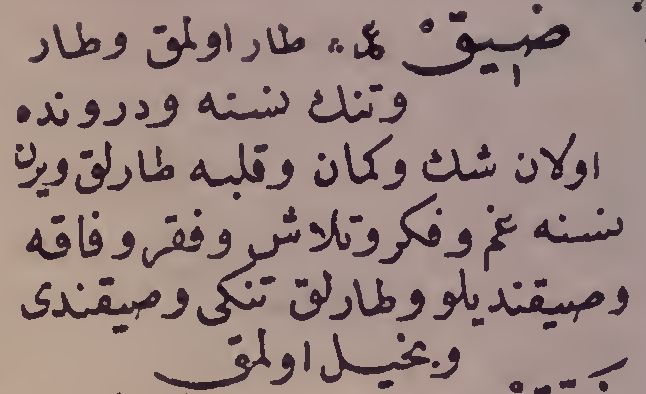 ضيق عم طار اولمق وطار
وتنك نسنه ودرونده
اولان شك وكمان وقلبه طارلق ويرن
نسنه غم وفكر وتلاش وفقر وفاقه
وصيقنديلو وطارلق تنكى وصيقندى
وبخيل اولمق